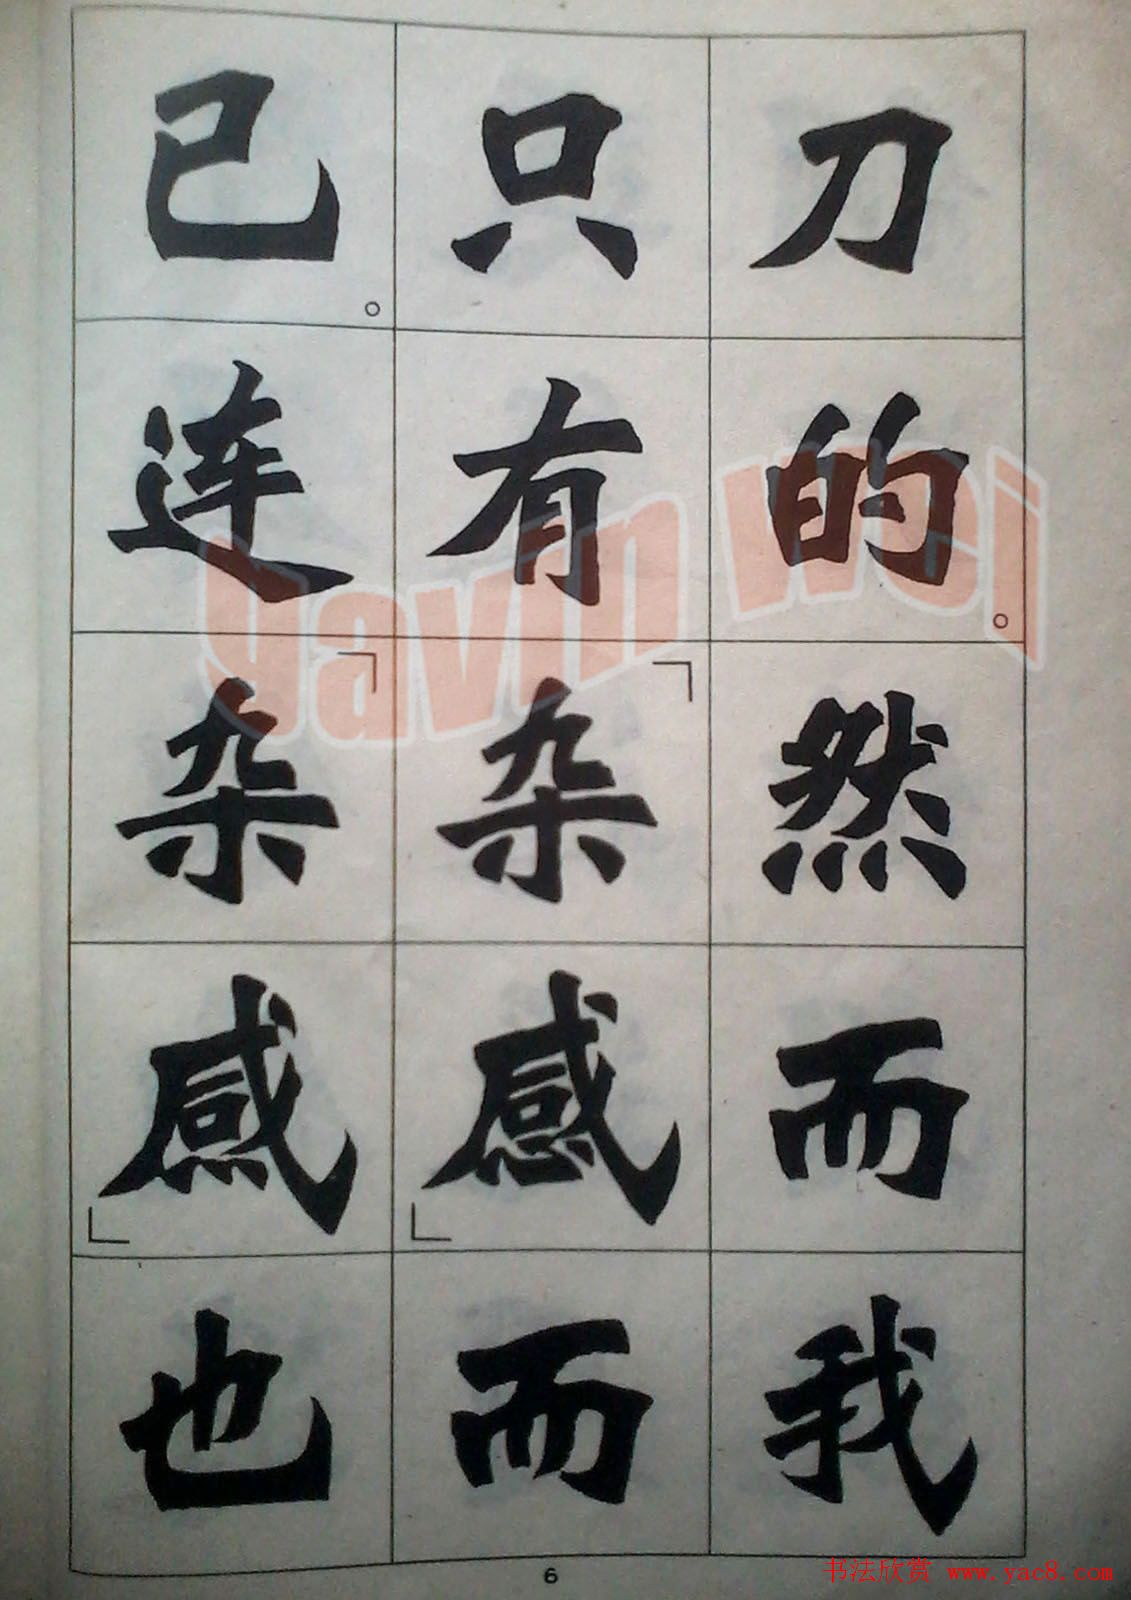 刀的。然而我
只有「杂感」而
已。连「杂感」也
6
gavin wei
书法欣赏 www.yac8.com